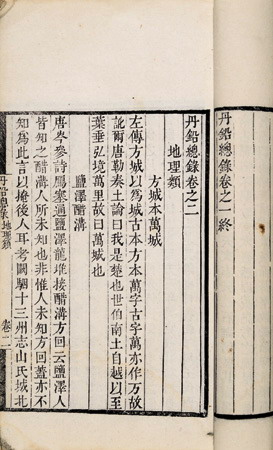 丹鉛總錄卷之一 終
丹鉛總錄卷之二
地理類
方城本萬城
左傳方城以為城古本方本萬字古字萬亦作万故
訛爾唐勒奏土論曰我是楚也世伯南土自越以至
葉垂弘境萬里故曰萬城也
鹽澤醋溝
唐岑參詩鴈塞通鹽澤龍堆接醋溝方回云鹽澤人
皆知之醋溝人所未知也非惟人未知方回蓋亦不
知為此言以搶後人耳考闞駰十三州志山氏城北
丹鉛總錄 地理類 卷二